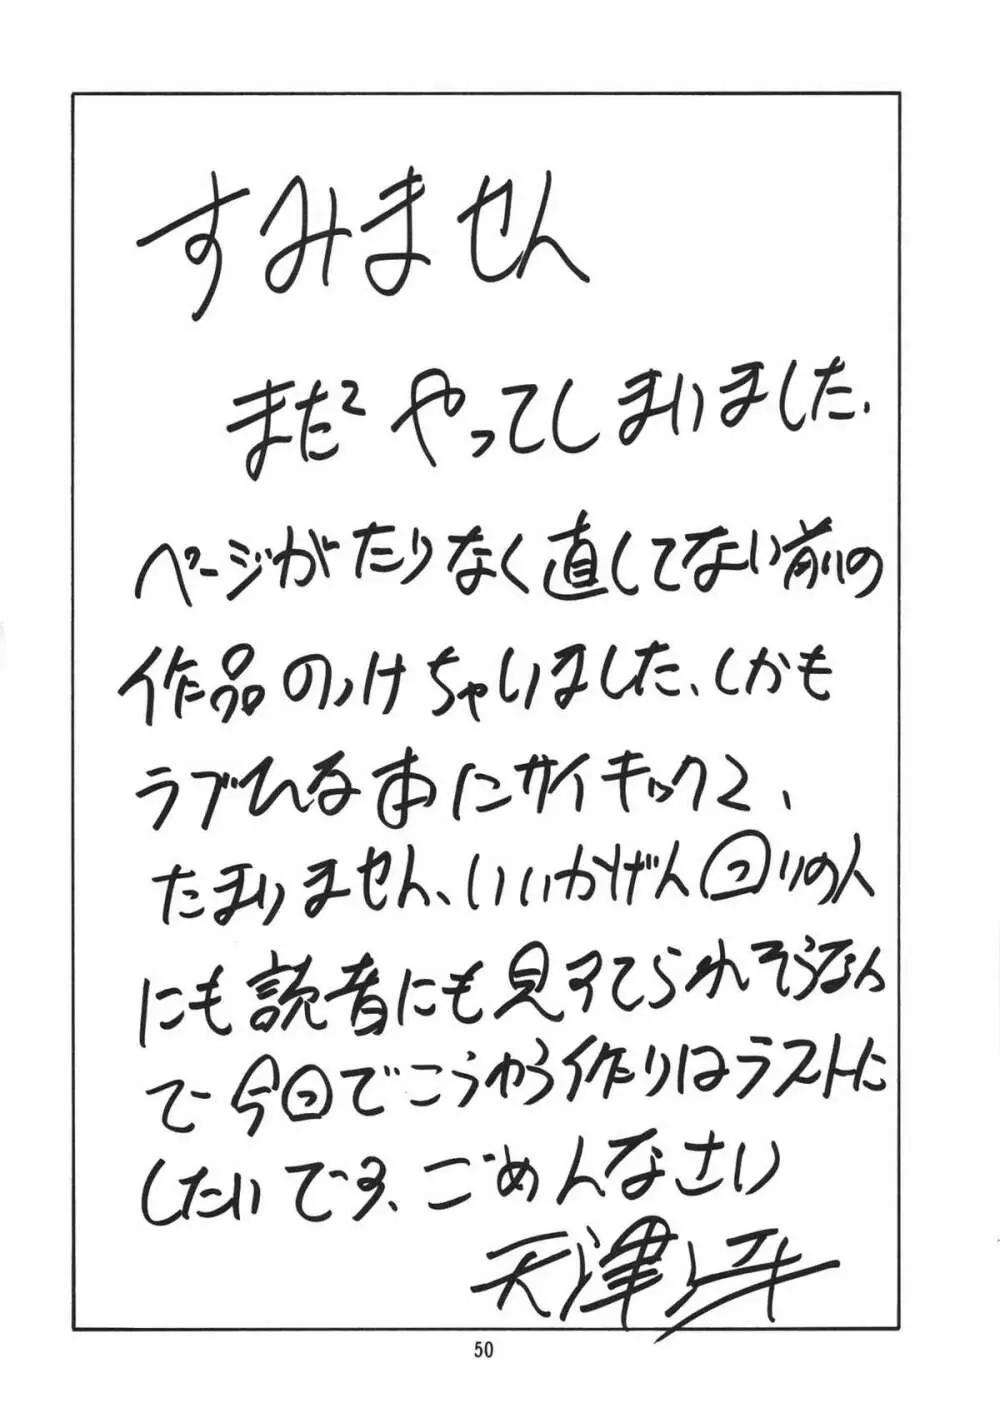 すみません
まだ やってしまいました.
ページがたりなく直してない前の
作品のっけちゃいました、しかも
ラブひな本にサイキック2、
たまりません、いいかげん回りの人
にも読者にも見すてられそうなん
で今回でこうゆう作りはラストに
したいです、ごめんなさい
天津
50